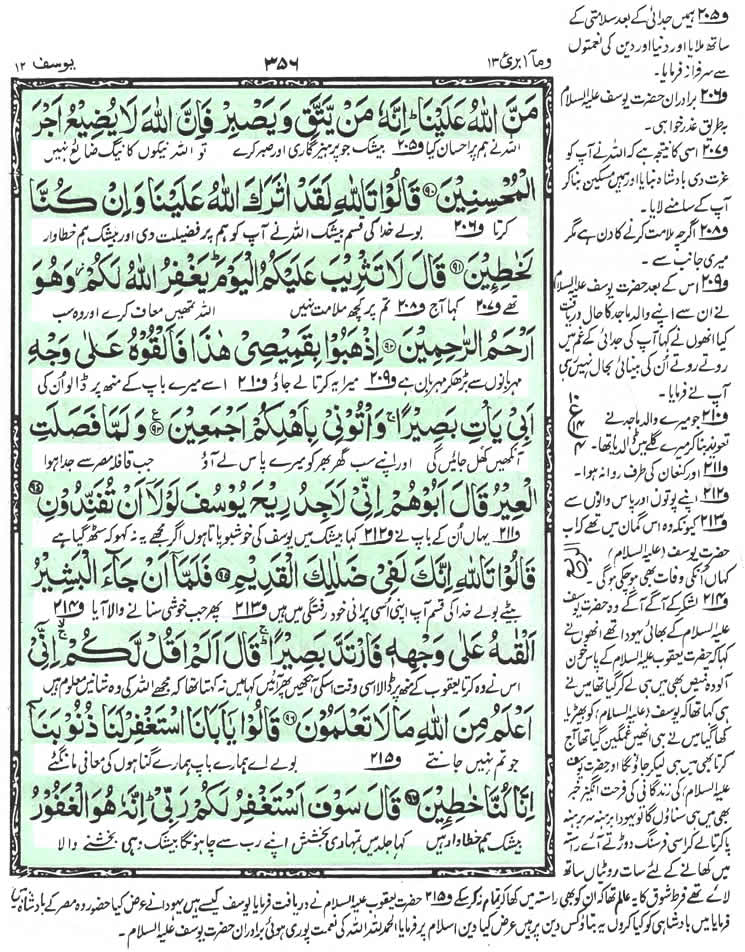 وما ابرئ ١٣
٣٥٦
یوسف ١٢
مَنَّ اللهُ عَلَيْنَا ؕ اِنَّهٗ مَنْ يَّتَّقِ وَيَصْبِرْ فَاِنَّ اللهَ لَا يُضِيْعُ اَجْرَ
اللہ نے ہم پر احسان کیا و۲۰۵ بیشک جو پرہیزگاری اور صبر کرے تو اللہ نیکوں کا نیگ ضائع نہیں
الْمُحْسِنِيْنَ ۹۰ قَالُوْا تَاللهِ لَقَدْ اٰثَرَكَ اللهُ عَلَيْنَا وَاِنْ كُنَّا
کرتا و۲۰۶ بولے خدا کی قسم بیشک اللہ نے آپ کو ہم پر فضیلت دی اور بیشک ہم خطاوار
لَخٰطِـِٕيْنَ ۹۱ قَالَ لَا تَثْرِيْبَ عَلَيْكُمُ الْيَوْمَ ؕ يَغْفِرُ اللهُ لَكُمْ ؗ وَهُوَ
تھے و۲۰۷ کہا آج و۲۰۸ تم پر کچھ ملامت نہیں اللہ تمھیں معاف کرے اور وہ سب
اَرْحَمُ الرّٰحِمِيْنَ ۹۲ اِذْهَبُوْا بِقَمِيْصِيْ هٰذَا فَاَلْقُوْهُ عَلٰى وَجْهِ
مہربانوں سے بڑھکر مہربان ہے و۲۰۹ میرا یہ کرتا لے جاؤ و۲۱۰ اسے میرے باپ کے منھ پر ڈالو اُن کی
اَبِيْ يَاْتِ بَصِيْرًا ۚ وَاْتُوْنِيْ بِاَهْلِكُمْ اَجْمَعِيْنَ ۹۳ وَلَمَّا فَصَلَتِ
آنکھیں کھل جائیں گی اور اپنے سب گھر بھر کو میرے پاس لے آؤ جب قافلہ مصر سے جدا ہوا
الْعِيْرُ قَالَ اَبُوْهُمْ اِنِّيْ لَاَجِدُ رِيْحَ يُوْسُفَ لَوْلَاۤ اَنْ تُفَنِّدُوْنِ ۹۴
و۲۱۱ یہاں اُن کے باپ نے و۲۱۲ کہا بیشک میں یوسف کی خوشبو پاتا ہوں اگر مجھے یہ نہ کہو کہ سٹھ گیا ہے
قَالُوْا تَاللهِ اِنَّكَ لَفِيْ ضَلٰلِكَ الْقَدِيْمِ ۹۵ فَلَمَّاۤ اَنْ جَآءَ الْبَشِيْرُ
بیٹے بولے خدا کی قسم آپ اپنی اُسی پرانی خود رفتگی میں ہیں و۲۱۳ پھر جب خوشی سنانے والا آیا و۲۱۴
اَلْقٰىهُ عَلٰى وَجْهِهٖ فَارْتَدَّ بَصِيْرًا ۚ قَالَ اَلَمْ اَقُلْ لَّكُمْ ۚۙ اِنِّيْۤ
اس نے وہ کرتا یعقوب کے منھ پر ڈالا اسی وقت اسکی آنکھیں پھر آئیں کہا میں نہ کہتا تھا کہ مجھے اللہ کی وہ شانیں معلوم ہیں
اَعْلَمُ مِنَ اللهِ مَا لَا تَعْلَمُوْنَ ۹۶ قَالُوْا يٰۤاَبَانَا اسْتَغْفِرْ لَنَا ذُنُوْبَنَاۤ
جو تم نہیں جانتے و۲۱۵ بولے اے ہمارے باپ ہمارے گناہوں کی معافی مانگئے
اِنَّا كُنَّا خٰطِـِٕيْنَ ۹۷ قَالَ سَوْفَ اَسْتَغْفِرُ لَكُمْ رَبِّيْ ؕ اِنَّهٗ هُوَ الْغَفُوْرُ
بیشک ہم خطاوار ہیں کہا جلد میں تمہاری بخشش اپنے رب سے چاہوں گا بیشک وہی بخشنے والا
و۲۰۵ ہمیں جدائی کے بعد سلامتی کے
ساتھ ملایا اور دنیا اور دین کی نعمتوں
سے سرفراز فرمایا۔
و۲۰۶ برادران حضرت یوسف علیہ السلام
بطریق عذر خواہی۔
و۲۰۷ اسی کا نتیجہ ہے کہ اللہ نے آپ کو
عزت دی بادشاہ بنایا اور ہمیں مسکین بنا کر
آپ کے سامنے لایا۔
و۲۰۸ اگرچہ ملامت کرنے کا دن ہے مگر
میری جانب سے۔
و۲۰۹ اس کے بعد حضرت یوسف علیہ السلام
نے ان سے اپنے والد ماجد کا حال دریافت
کیا انھوں نے کہا آپ کی جدائی کے غم میں
روتے روتے اُن کی بینائی بحال نہیں رہی
آپ نے فرمایا۔
و۲۱۰ جو میرے والد ماجد نے
تعویذ بنا کر میرے گلے میں ڈالدیا تھا۔
و۲۱۱ اور کنعان کی طرف روانہ ہوا۔
و۲۱۲ اپنے پوتوں اور پاس والوں سے
و۲۱۳ کیونکہ وہ اس گمان میں تھے کہ اب
حضرت یوسف (علیہ السلام)
کہاں انکی وفات بھی ہوچکی ہوگی
و۲۱۴ لشکر کے آگے آگے وہ حضرت یوسف
علیہ السلام کے بھائی یہودا تھے انھوں نے
کہا کہ حضرت یعقوب علیہ السلام کے پاس خون
آلودہ قمیص بھی میں ہی لے کر گیا تھا میں نے
ہی کہا تھا کہ یوسف (علیہ السلام) کو بھیڑیا
کھا گیا میں نے ہی انھیں غمگین کیا تھا آج
کرتا بھی میں ہی لیکر جاؤنگا اور حضرت یوسف
علیہ السلام کی زندگانی کی فرحت انگیز خبر
بھی میں ہی سناؤں گا تو یہودا برہنہ سر برہنہ
پا کرتا لے کر اسی فرسنگ دوڑتے آئے راستہ
میں کھانے کے لئے سات روٹیاں ساتھ
لائے تھے فرط شوق کا یہ عالم تھا کہ ان کو بھی راستہ میں کھا کر تمام نہ کرسکے و۲۱۵ حضرت یعقوب علیہ السلام نے دریافت فرمایا یوسف کیسے ہیں یہودا نے عرض کیا حضور وہ مصر کے بادشاہ ہیں
فرمایا میں بادشاہی کو کیا کروں یہ بتاؤ کس دین پر ہیں عرض کیا دین اسلام پر فرمایا الحمد للہ اللہ کی نعمت پوری ہوئی برادران حضرت یوسف علیہ السلام۔